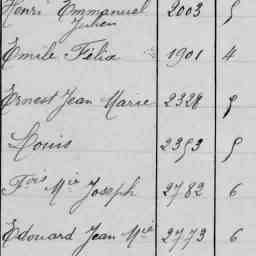 Henri Emmanuel 2003 5
Julien
Emile Félix 1901 4
Ernest Jean Marie 2328
Louis 2353 5
Fois Mie Joseph 2782 6
Edouard Jean Mie 2773 6